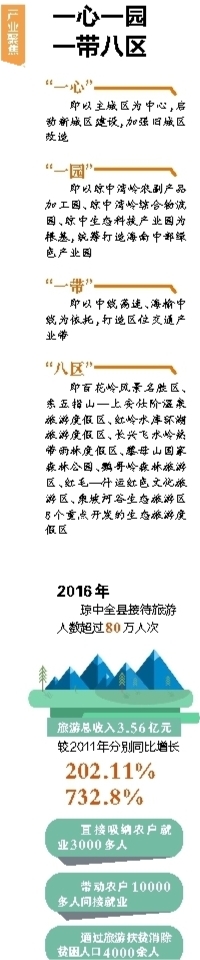 产业聚焦
一心一园
一带八区
“一心”
即以主城区为中心,启
动新城区建设,加强旧城区
改造
“一园”
即以琼中湾岭农副产品
加工园、琼中湾岭综合物流
园、琼中生态科技产业园为
根基,统筹打造海南中部绿
色产业园
“一带”
即以中线高速、海榆中
线为依托,打造区位交通产
业带
“八区”
即百花岭风景名胜区、
东五指山—上安仕阶温泉
旅游度假区、红岭水库环湖
旅游度假区、长兴飞水岭热
带雨林度假区、黎母山国家
森林公园、鹦哥岭森林旅游
区、红毛—什运红色文化旅
游区、乘坡河谷生态旅游区
8个重点开发的生态旅游度
假区
2016年
琼中全县接待旅游
人数超过80万人次
旅游总收入3.56亿元
较2011年分别同比增长
202.11%
732.8%
直接吸纳农户就
业3000多人
带动农户10000
多人间接就业
通过旅游扶贫消除
贫困人口4000余人